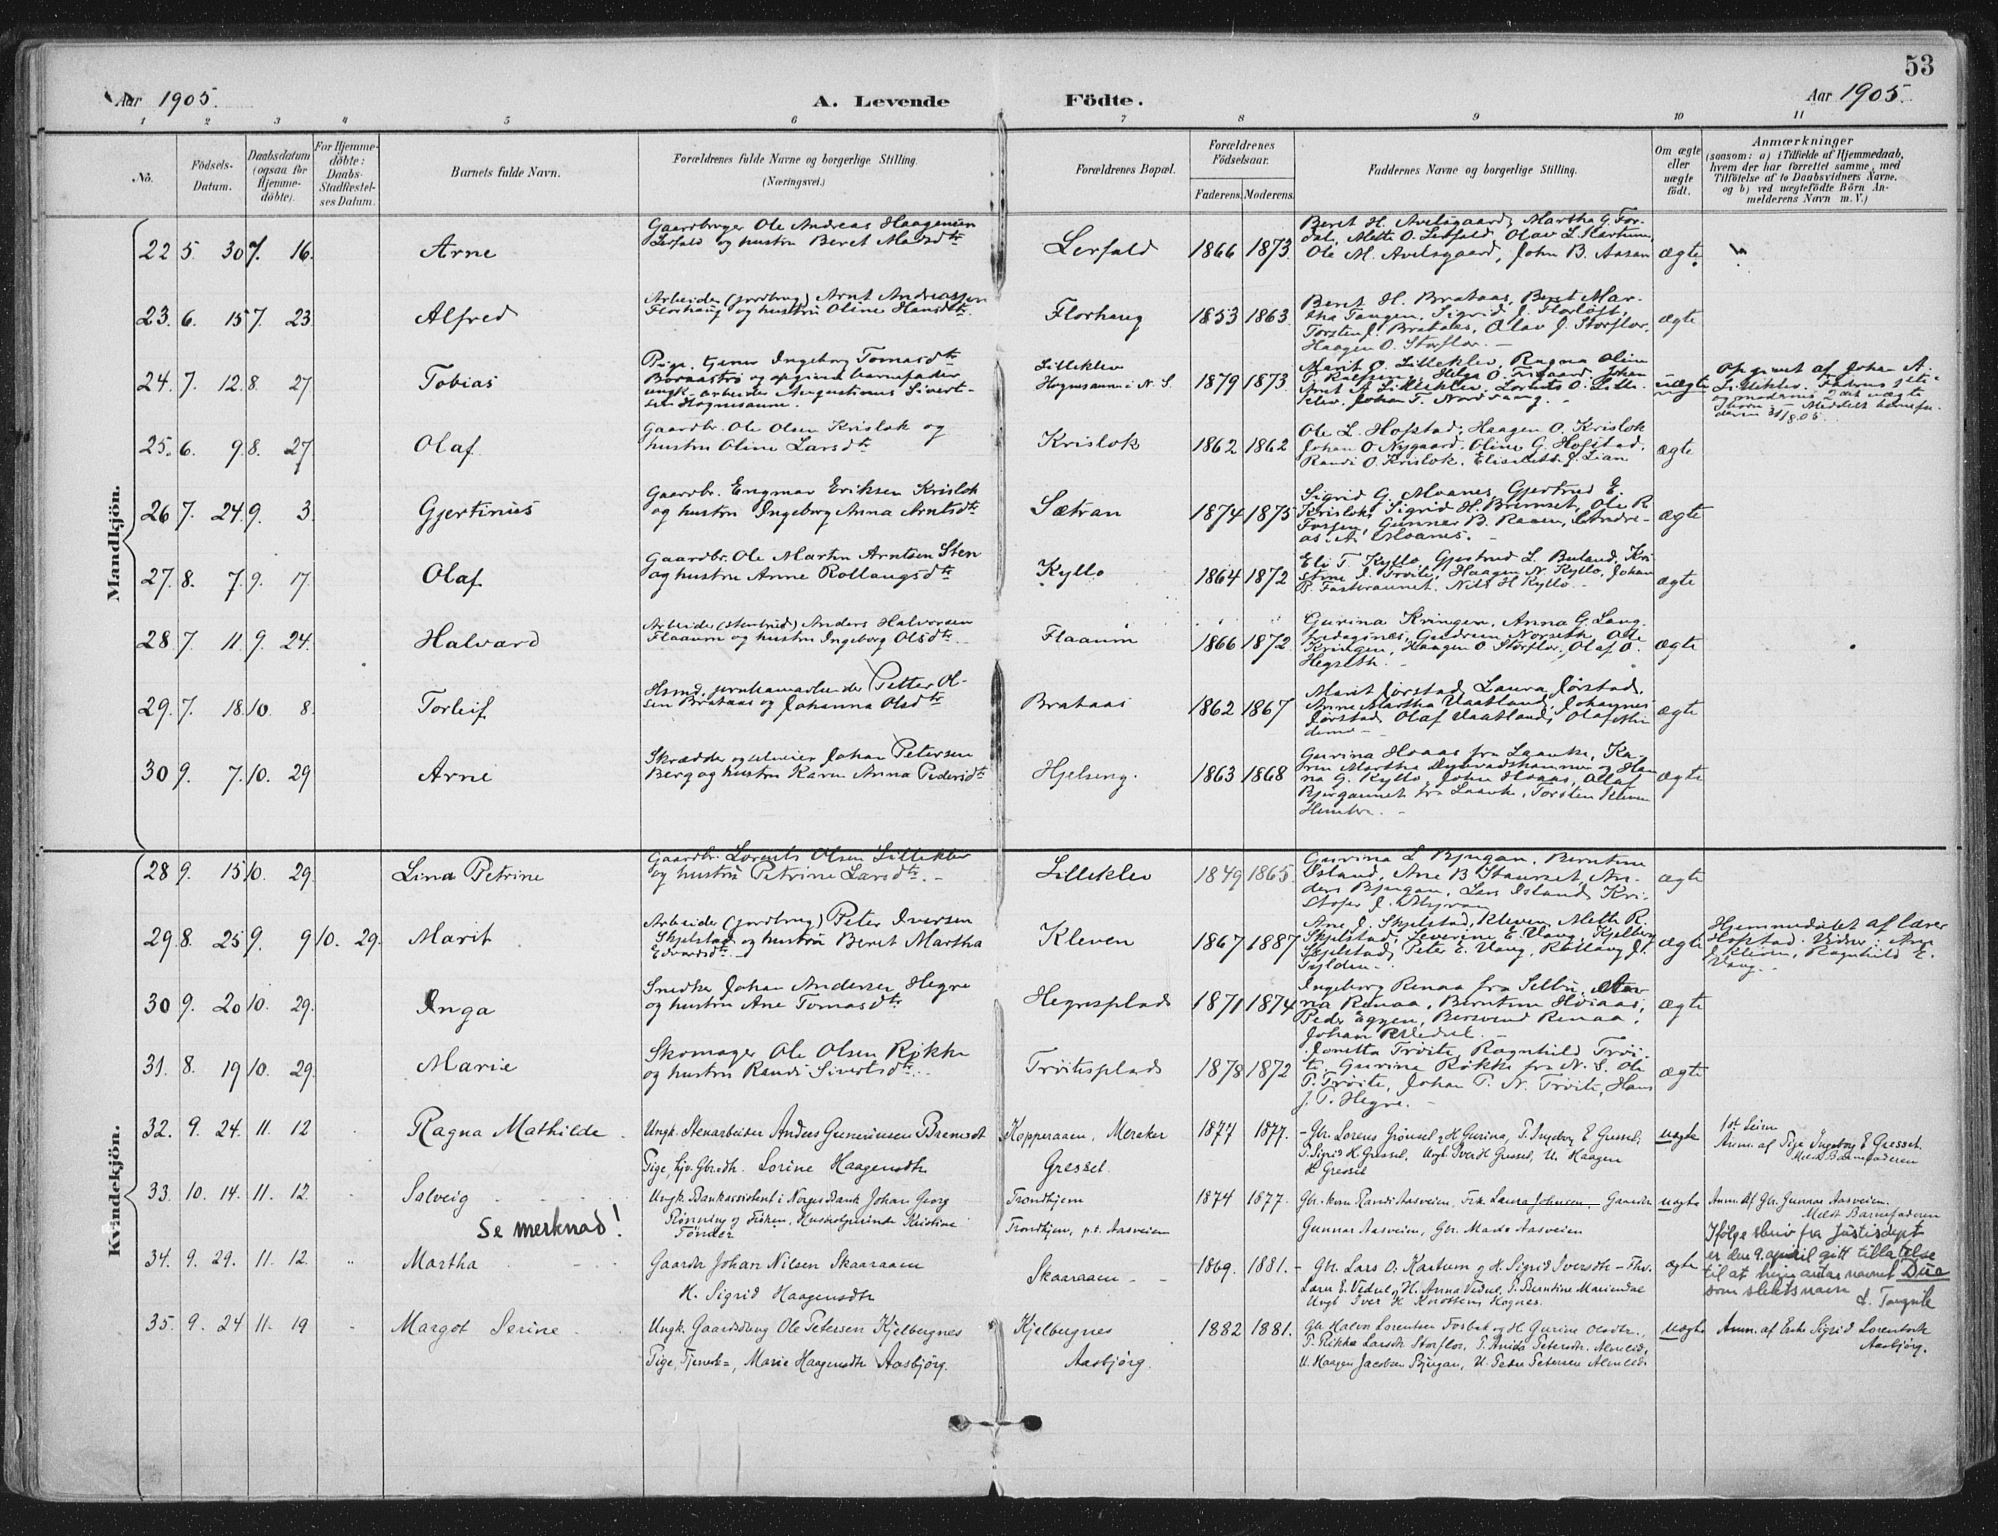 53
Aar 1905.
A. Levende Födte.
Aar 1905.
1 2 3 4 5 6 7 8 9 10 11
No.
Födsels-Datum.
Daabsdatum (ogsaa for Hjemme-döbte).
For Hjemme-döbte: Daabs-Stadfæstel-ses Datum.
Barnets fulde Navn.
Forældrenes fulde Navne og borgerlige Stilling. (Næringsvei.)
Forældrenes Bopæl.
Forældrenes Födselsaar.
Faderens. Moderens.
Faddernes Navne og borgerlige Stilling.
Om ægte eller uægte født.
Anmærkninger
(saasom: a) i Tilfælde af Hjemmedaab, hvem der har forrettet samme, med Tilföielse af to Daabsvidners Navne. og b) ved uægtefödte Börn An-melderens Navn m. V.)
Mandkjön.
22 5 30 7. 16. Arne
Gaardbruger Ole Andreas Haagensen
Lerfald og hustru Beret Matsdtr
Lerfald 1866 1873.
Beret H. Avelsgaard, Martha G. For-
dal, Mette O. Lerfald, Olav L. Kartum,
Ole M. Avelsgaard, John B. Aasan
ægte.
23. 6. 15 7. 23. Alfred
Arbeider (jordbrug) Arnt Andreassen
Florhaug og hustru Oline Hansdtr.
Florhaug 1853 1863.
Beret H. Brataas, Beret Mar-
tha Tangen, Sigrid J. Florløft,
Torsten J. Brataas, Olav J. Storflor,
Haagen O. Storflor.
ægte
24. 7. 12. 8. 27. Tobias
Pige, tjener Ingeborg Tomasdtr
og opgiven barnefader
ungk. arbeider Augustinus Sivert-
sen Hognesaune.
Lilleklev
Hognesaune i N. S. 1879 1873.
Marit O. Lilleklev, Ragna Oline
Helga O. Johan
Arnt A. Lilleklev, Lorents O. Lille-
klev, Johan T. Nordvang.
uægte
Opgivet af Johan A.
Lilleklev. Faderens 1ste
og moderens 2det uægte
barn. Meddelt barnefa-
deren 31/8.05.
25. 6. 9. 8. 27 Olaf
Gaardbr. Ole Olsen Krislok og
hustru Oline Larsdtr
Krislok 1862 1862
Ole L. Hofstad, Haagen O. Krislok
Johan O. Nygaard, Oline G. Hofstad,
Randi O. Krislok, Elisabeth J. Lian
ægte
26 7. 24. 9. 3. Gjertinus
Gaardbr. Engmar Eriksen Krislok
og hustru Ingeborg Anna Arntsdtr
Sætran 1874 1875
Sigrid G. Moanes, Gjertrud E.
Krislok, Sigrid H. Bremset, Ole R
Fossen, Gunnar B. Raaen, Andre-
as A. Moanes.
ægte
27. 8. 7 9. 17. Olaf
Gaardbr. Ole Martin Arntsen Sten
og hustru Anne Rollaugsdtr
Kyllo 1864 1872
Eli T. Kyllo, Gjertrud L. Buland, Kri-
stine J. Trøite, Haagen N. Kyllo, Johan
B. Fasteraunet, Nils H Kyllo.
ægte
28 7. 11. 9. 24. Halvard
Arbeider (stenbrud) Anders Halvorsen
Flaamo og hustru Ingeborg Olsdtr.
1866 1872.
Gurina Kringen, Anna G. Lang-
Gudrun Norseth, Ole
Kringen, Haagen O Storflor, Olaf O.
Hegseth.
ægte
29. 7. 18. 10. 8. Torleif
Hsmd. jernbanearbeider Petter Ol-
sen Brataas og Johanna Olsdtr
Brataas 1862 1867
Marit Jørstad, Laura Jørstad,
Anne Martha Vaatland, Johannes
Jørstad, Olaf Vaatland,
ægte
30 9. 7. 10. 29 Arne
Skrædder og selveier Johan Petersen
Berg og hustru Karen Anna Pedersdtr
Hjelseng. 1863 1868
Gurina Hoaas fra Laanke, Ka-
ren Martha Dybvadshammer og Han-
na G. Kyllo, John Hoaas, Olaf
Bjerganmet fra Laanke, Torsten Kleven
ægte
Kvindekjön.
28 9. 15 10. 29. Lina Petrine
Gaardbr. Lorents Olsen Lilleklev
og hustru Petrine Larsdtr.
Lilleklev 1849 1865.
Gurina L Bjugan, Berntine
Øsland, Ane B Staurset, An-
ders Bjugan, Lars Øsland, Kri-
stofer J. Myran
ægte
29. 8. 25 9. 9 10. 29. Marit
Arbeider (jordbrug) Peter Iversen
Skjelstad og hustru Beret Martha
Edvardsdtr.
Kleven 1867 1887
Ane J. Skjelstad, Kleven, Mette R.
Skjelstad, Severine E. Vang, Kjelberg
Skjelstad, Peter E. Vang, Rollaug J.
Fylden.
ægte
Hjemmedøbt af lærer
Hofstad. Vidner: Ane
J. Kleven, Ragnhild E.
Vang.
30 9. 20 10. 29. Inga
Snedker Johan Andersen Hegre
og hustru Ane Tomasdtr
Hegresplads 1871 1874
Ingeborg Renaa fra Selbu, An-
na Renaa, Berntine Hoiaas,
Peder Eggen, Bersvend Renaa,
Johan R Vedul.
ægte
31. 8. 19 10. 29. Marie
Skomager Ole Olsen Røkke
og hustru Randi Sivertsdtr.
Trøitesplads 1878 1872
Jonetta Trøite, Ragnhild Trøi-
te, Gurina Røkke fra N. S. Ole
P. Trøite, Johan P. N. Trøite, Hans
J. P. Hegre.
ægte
32. 9. 24. 11. 12 Ragna Mathilde
Ungk. Stenarbeider Anders Gunerius­sen Bremset
Pige, hjv. Gbr.dtr. Lorine Haagensdtr
Kopperaaen, Meraker
Gressel. 1877 1877.
Gbr. Lorens Grönset & H Gurina, P. Ingebor E Gressel,
P. Sigrid H. Gressel, Ungk Iver H Gressel, U. Haagen
H Gressel
uægte
1ste Leiem
Anm. af Pige Ingeborg E Gressel.
Meldt Barnefaderen
33. 10. 14. 11. 12. Solveig
Se merknad!
Ungk. Bankassistent i Norges Bank Johan Georg
Rönning og Frøken, Husholderinde Kristine
Tönder
Trondhjem
Trondhjem, p.t. Aasveien 1874 1877.
Gbr. kone Randi Aasveien, Frk Laura Johnsen, Gaardbr
Gunnar Aasveien, Gbr. Mads Aasveien
uægte
Anm. Af Gbr. Gunnar Aasveien.
Meldt Barnefaderen
Ifölge skriv fra Justisdept
er den 9. april gitt tillatelse
til at hun antar navnet Due
som slektsnavn
34. 9. 29. 11. 12. Martha
Gaardbr Johan Nilsen Skaaraaen
H. Sigrid Haagensdtr
Skaaraaen 1869. 1881.
Gbr. Lars O. Kartum og H. Sigrid Iversdtr - Fhv.
Larer E. Vedul og H. Anna Vedul, P. Berntine Mariendal
Ungk Iver H Knotten Hognes.
ægte
35. 9. 24 11. 19 Margot Serine
Ungk. Gaarddreng Ole Petersen Kjelbugnes
Pige, Tjenest, Marie Haagensdtr Aasbjörg.
Kjelbugnes
Aasbjörg. 1882 1881.
Gbr. Halvor Lorentsen Forbak og H Gurine Olsdtr.,
P. Rikka Larsdtr Storflor, P. Anida Petersdtr. Almlid,
U. Haagen Jacobsen Bjugan, U. Peder Petersen Almlid.
uægte
Anm. af Enke Sigrid Lorentsdr
Aasbjörg.